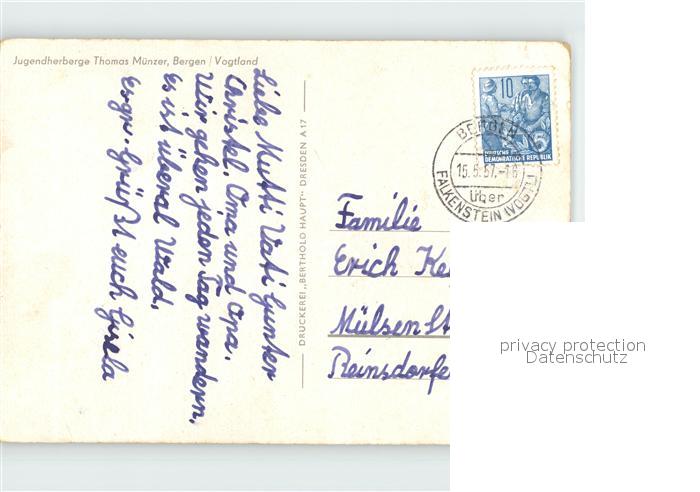 Jugendherberge Thomas Münzer, Bergen / Vogtland
Liebe Mutti Vati Gunter
Christel. Oma und Opa.
Wir gehen jeden Tag wandern.
Es ist überal Wald.
Es gr. Grüßt euch Gisela
DRUCKEREI „BERTHOLD HAUPT" DRESDEN A 17
10
DEUTSCHE
DEMOKRATISCHE REPUBLIK
BERGEN
15.6.57.-18
über
FALKENSTEIN (VOGTL)
Familie
Erich
Mülsen St
Reinsdorfe
privacy protection
Datenschutz